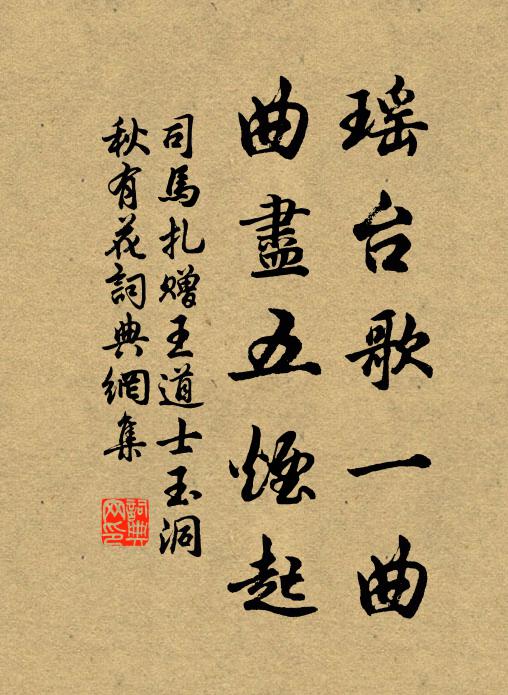 瑶台歌一曲
曲盡五煙起
司馬扎赠王道士玉洞
秋有花詞典網集
詞典网印